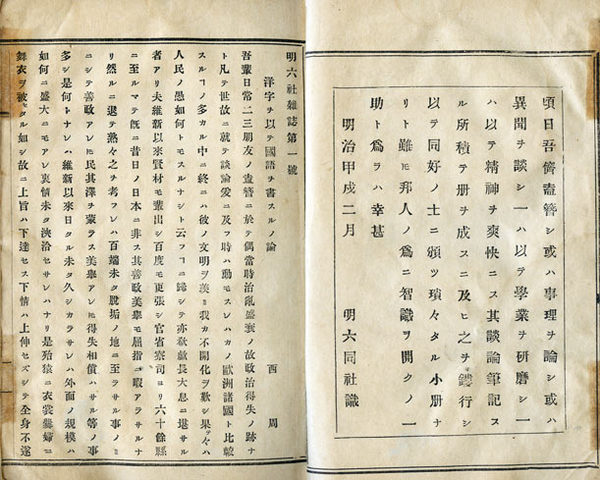 頃日吾儕盍簪シ或ハ事理ヲ論シ或ハ
異聞ヲ談シ一ハ以テ學業ヲ研磨シ一
ハ以テ精神ヲ爽快ニス其談論筆記ス
ル所積テ册ヲ成スニ及ヒ之ヲ鏤行シ
以テ同好ノ士ニ頒ツ瑣々タル小册ナ
リト雖モ邦人ノ爲ニ智識ヲ開クノ一
助ト爲ラハ幸甚
明治甲戌二月 明六同社識
明六社雜誌第一號
洋字ヲ以テ國語ヲ書スルノ論
西 周
吾輩日常二三朋友ノ盍簪ニ於テ偶當時治亂盛衰ノ故政治得失ノ跡ナ
ト凡テ世故ニ就テ談論爰ニ及フ時ハ動モスレハカノ歐洲諸國ト比較
スルヿノ多カル中ニ終ニハ彼ノ文明ヲ羨ミ我カ不開化ヲ歎シ果々ハ
人民ノ愚如何トモスルナシト云フヿニ歸シテ亦欷歔長大息ニ堪サル
者アリ夫維新以來賢材モ輩出シ百度モ更張シ官省寮司ヨリ六十餘縣
ニ至ルマテ既ニ昔日ノ日本ニ非ス其善政美擧モ屈指ニ暇アラサルナ
リ然ルニ退テ熟々之ヲ考フレハ百端未タ脱垢ノ地ニ至ラサル事ノミ
ニシテ善政アレ𪜈民其澤ヲ蒙ラス美擧アレ𪜈得失相償ハサル等ノ事
多シ是何トナレハ維新以來日タル未タ久シカラサレハ外面ノ規模ハ
如何ニ盛大ニモアレ裏情未タ浹洽セサレハナリ是殆猿ニ衣裳舞婦ニ
舞衣ヲ被セタル如シ故ニ上旨ハ下達セス下情ハ上伸セズシテ全身不遂